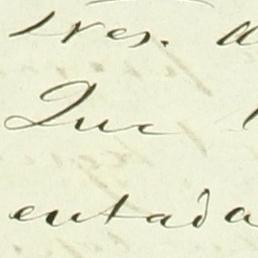 tres.
Que
entada